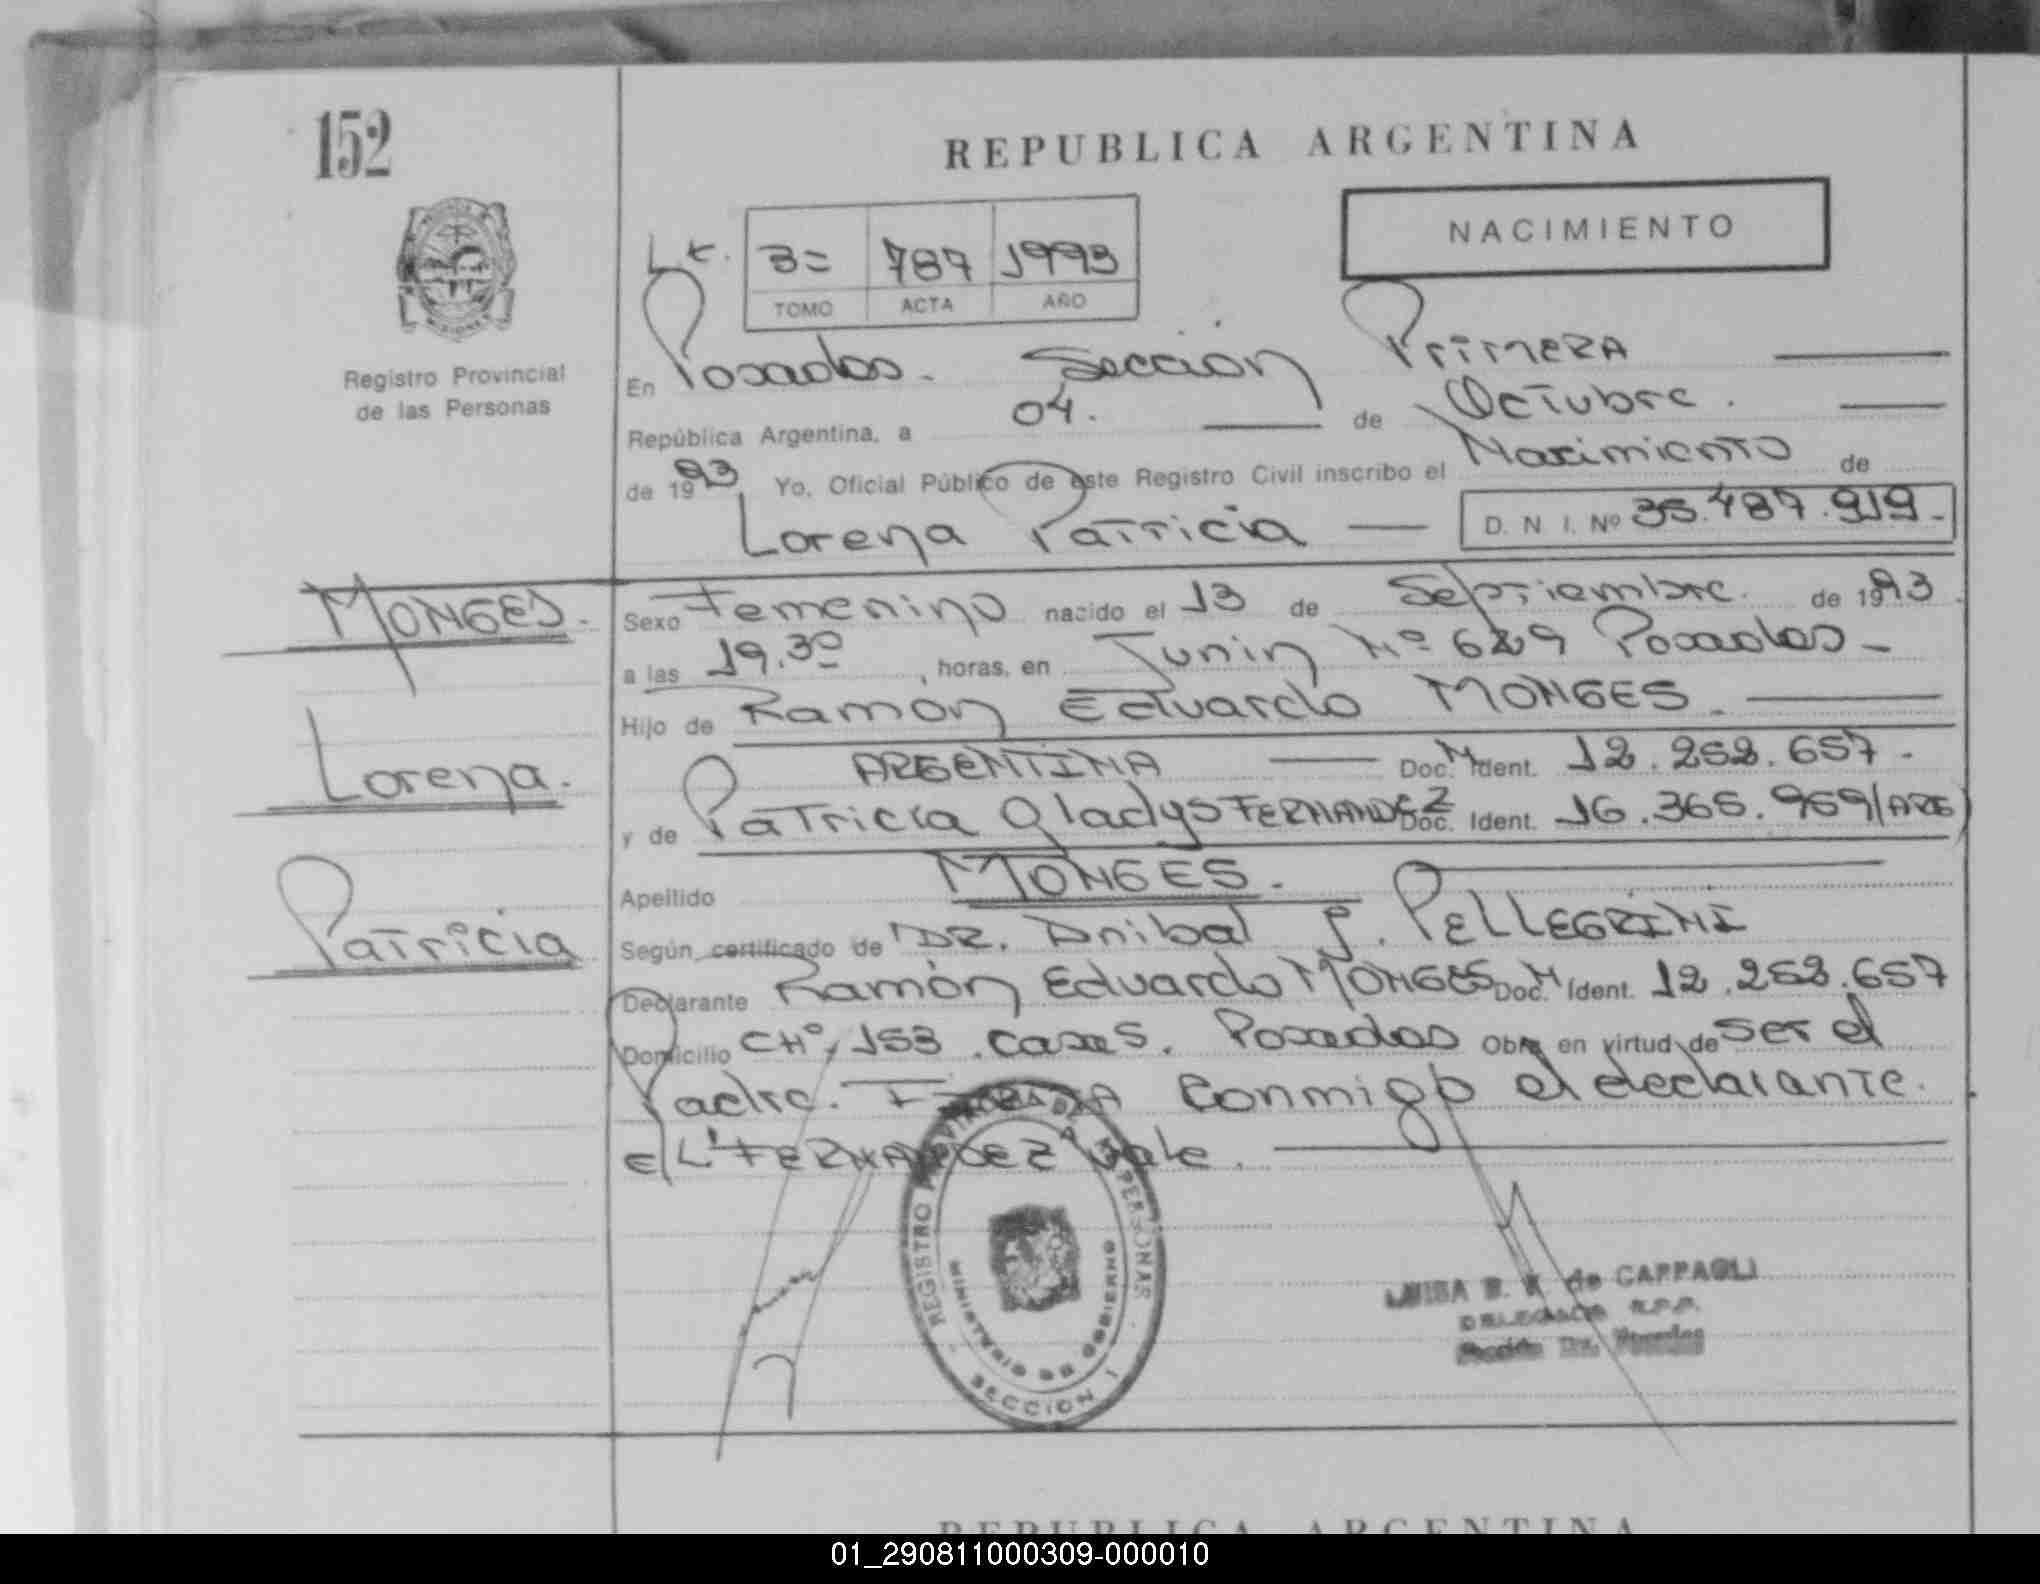 152
REPUBLICA ARGENTINA
NACIMIENTO
Lt. 3= 787 1993
TOMO ACTA AÑO
Registro Provincial
de las Personas
En Posadas. Sección Primera
República Argentina, a 04. de Octubre.
de 1993 Yo, Oficial Público de este Registro Civil inscribo el Nacimiento de
Lorena Patricia D. N. I. Nº 35.487.919.
MONGES.
Lorena.
Patricia
Sexo Femenino nacido el 13 de Septiembre. de 1993.
a las 19.30, horas, en Junin Nº 689 Posadas
Hijo de Ramón Eduardo MONGES.
ARGENTINA Doc. M Ident. 12.252.657.
y de Patricia Gladys FERNANDEZ Doc. Ident. 16.365.959 (ARG)
Apellido MONGES.
Según certificado de DR. Anibal J. PELLEGRINI
Declarante Ramón Eduardo MONGES Doc. M Ident. 12.252.657
Domicilio CHº 153 casas. Posadas Obra en virtud de ser el
Padre. FIRMA Conmigo el declarante.
E/L "FERNANDEZ" Vale.
REGISTRO PROVINCIAL DE LAS PERSONAS
MINISTERIO DE GOBIERNO
SECCION 1
de CAPPAGLI
DELEGADA R.P.P.
Sección Posadas
REPUBLICA ARGENTINA
01_290811000309-000010